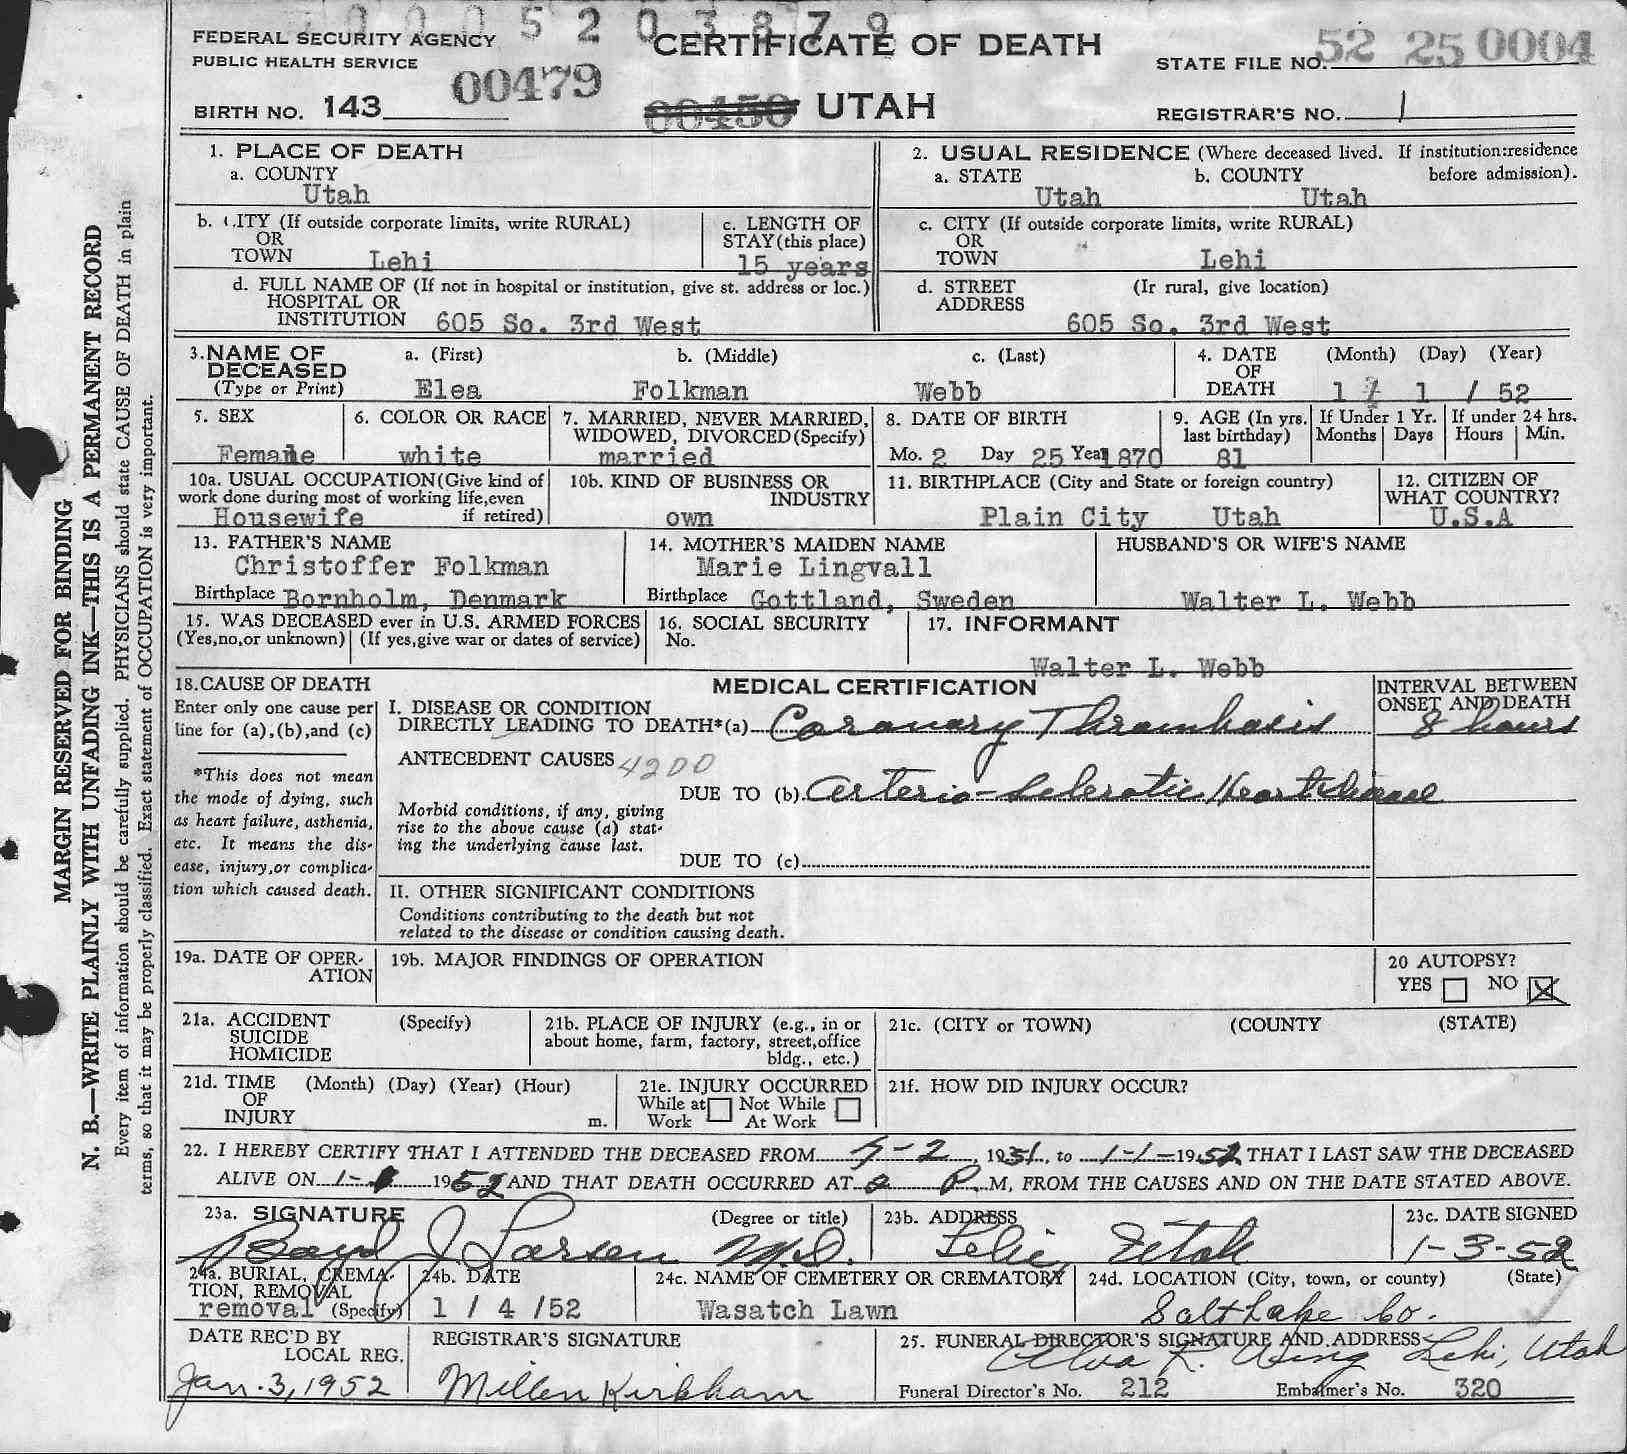 0005203879
FEDERAL SECURITY AGENCY
PUBLIC HEALTH SERVICE
CERTIFICATE OF DEATH
STATE FILE NO. 52 25 0004
BIRTH NO. 143
00479
00450 UTAH
REGISTRAR'S NO. 1
1. PLACE OF DEATH
a. COUNTY
Utah
2. USUAL RESIDENCE (Where deceased lived. If institution:residence before admission).
a. STATE Utah
b. COUNTY Utah
b. CITY (If outside corporate limits, write RURAL)
OR
TOWN Lehi
c. LENGTH OF
STAY (this place)
15 years
c. CITY (If outside corporate limits, write RURAL)
OR
TOWN Lehi
d. FULL NAME OF (If not in hospital or institution, give st. address or loc.)
HOSPITAL OR
INSTITUTION 605 So. 3rd West
d. STREET (Ir rural, give location)
ADDRESS
605 So. 3rd West
3. NAME OF DECEASED
(Type or Print)
a. (First) Elea
b. (Middle) Folkman
c. (Last) Webb
4. DATE OF DEATH
(Month) (Day) (Year)
1 / 1 / 52
5. SEX
Female
6. COLOR OR RACE
white
7. MARRIED, NEVER MARRIED,
WIDOWED, DIVORCED (Specify)
married
8. DATE OF BIRTH
Mo. 2 Day 25 Year 1870
9. AGE (In yrs.
last birthday)
81
If Under 1 Yr.
Months Days
If under 24 hrs.
Hours Min.
10a. USUAL OCCUPATION (Give kind of
work done during most of working life, even
if retired)
Housewife
10b. KIND OF BUSINESS OR
INDUSTRY
own
11. BIRTHPLACE (City and State or foreign country)
Plain City Utah
12. CITIZEN OF
WHAT COUNTRY?
U.S.A
13. FATHER'S NAME
Christoffer Folkman
Birthplace Bornholm, Denmark
14. MOTHER'S MAIDEN NAME
Marie Lingvall
Birthplace Gottland, Sweden
HUSBAND'S OR WIFE'S NAME
Walter L. Webb
15. WAS DECEASED ever in U.S. ARMED FORCES
(Yes,no,or unknown) (If yes,give war or dates of service)
16. SOCIAL SECURITY
No.
17. INFORMANT
Walter L. Webb
18. CAUSE OF DEATH
Enter only one cause per
line for (a),(b),and (c)
*This does not mean
the mode of dying, such
as heart failure, asthenia,
etc. It means the dis-
ease, injury,or complica-
tion which caused death.
MEDICAL CERTIFICATION
INTERVAL BETWEEN
ONSET AND DEATH
I. DISEASE OR CONDITION
DIRECTLY LEADING TO DEATH*(a) Coronary Thrombosis
8 hours
ANTECEDENT CAUSES 4200
DUE TO (b) Arterio-Sclerotic Heart disease
Morbid conditions, if any, giving
rise to the above cause (a) stat-
ing the underlying cause last.
DUE TO (c)
II. OTHER SIGNIFICANT CONDITIONS
Conditions contributing to the death but not
related to the disease or condition causing death.
19a. DATE OF OPER-
ATION
19b. MAJOR FINDINGS OF OPERATION
20 AUTOPSY?
YES NO X
21a. ACCIDENT (Specify)
SUICIDE
HOMICIDE
21b. PLACE OF INJURY (e.g., in or
about home, farm, factory, street,office
bldg., etc.)
21c. (CITY or TOWN) (COUNTY (STATE)
21d. TIME (Month) (Day) (Year) (Hour)
OF
INJURY m.
21e. INJURY OCCURRED
While at Not While
Work At Work
21f. HOW DID INJURY OCCUR?
22. I HEREBY CERTIFY THAT I ATTENDED THE DECEASED FROM 5-2, 1951, to 1-1-1952 THAT I LAST SAW THE DECEASED
ALIVE ON 1-1 1952 AND THAT DEATH OCCURRED AT 2 P.M, FROM THE CAUSES AND ON THE DATE STATED ABOVE.
23a. SIGNATURE (Degree or title)
Boyd J Larsen M.D.
23b. ADDRESS
Lehi, Utah
23c. DATE SIGNED
1-3-52
24a. BURIAL, CREMA-
TION, REMOVAL
removal (Specify)
24b. DATE
1 / 4 /52
24c. NAME OF CEMETERY OR CREMATORY
Wasatch Lawn
24d. LOCATION (City, town, or county) (State)
Salt Lake Co.
DATE REC'D BY
LOCAL REG.
Jan. 3, 1952
REGISTRAR'S SIGNATURE
Millen Kirkham
25. FUNERAL DIRECTOR'S SIGNATURE AND ADDRESS
Alva F. Wing Lehi, Utah
Funeral Director's No. 212
Embalmer's No. 320
MARGIN RESERVED FOR BINDING
N. B.—WRITE PLAINLY WITH UNFADING INK—THIS IS A PERMANENT RECORD
Every item of information should be carefully supplied. PHYSICIANS should state CAUSE OF DEATH in plain
terms, so that it may be properly classified. Exact statement of OCCUPATION is very important.